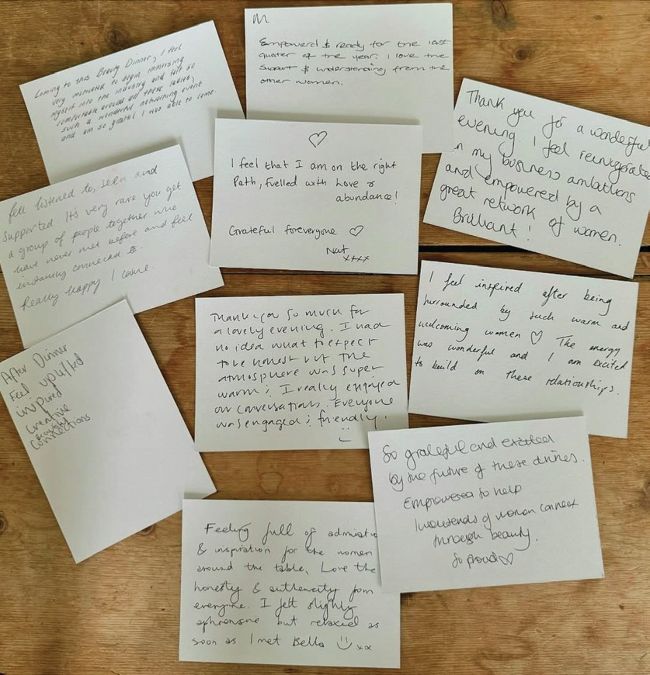 Coming to this Beauty Dinner, I feel
very motivated to begin immersing
myself into the industry and felt so
comfortable around all these ladies,
such a wonderful networking event
and am so grateful I was able to come
M
Empowered & ready for the last
quarter of the year. I love the
support & understanding from the
other women.
Thank you for a wonderful
evening I feel reinvigorated
in my business ambitions
and empowered by a
great network of women.
Brilliant!
♡
I feel that I am on the right
Path, fuelled with love &
abundance!
Grateful foreveryone ♡
Nat
xxxx
Felt listened to, seen and
supported Its very rare you get
a group of people together who
have never met before and feel
instantly connected to.
Really happy I came
I feel inspired after being
surrounded by such warm and
welcoming women ♡ The energy
was wonderful and I am excited
to build on these relationships.
Thank you so much for
a lovely evening. I had
no idea what to expect
to be honest but the
atmosphere was super
warm & I really enjoyed
our conversations. Everyone
was engaged & friendly.
After Dinner
Feel uplifted
inspired
creative
connections
So grateful and excited
by the future of these dinners.
Empowered to help
thousands of women connect
through beauty.
So proud ♡
Feeling full of admiration
& inspiration for the women
around the table. Love the
honesty & authenticity from
everyone. I felt slightly
but relaxed as
soon as I met Bella xx